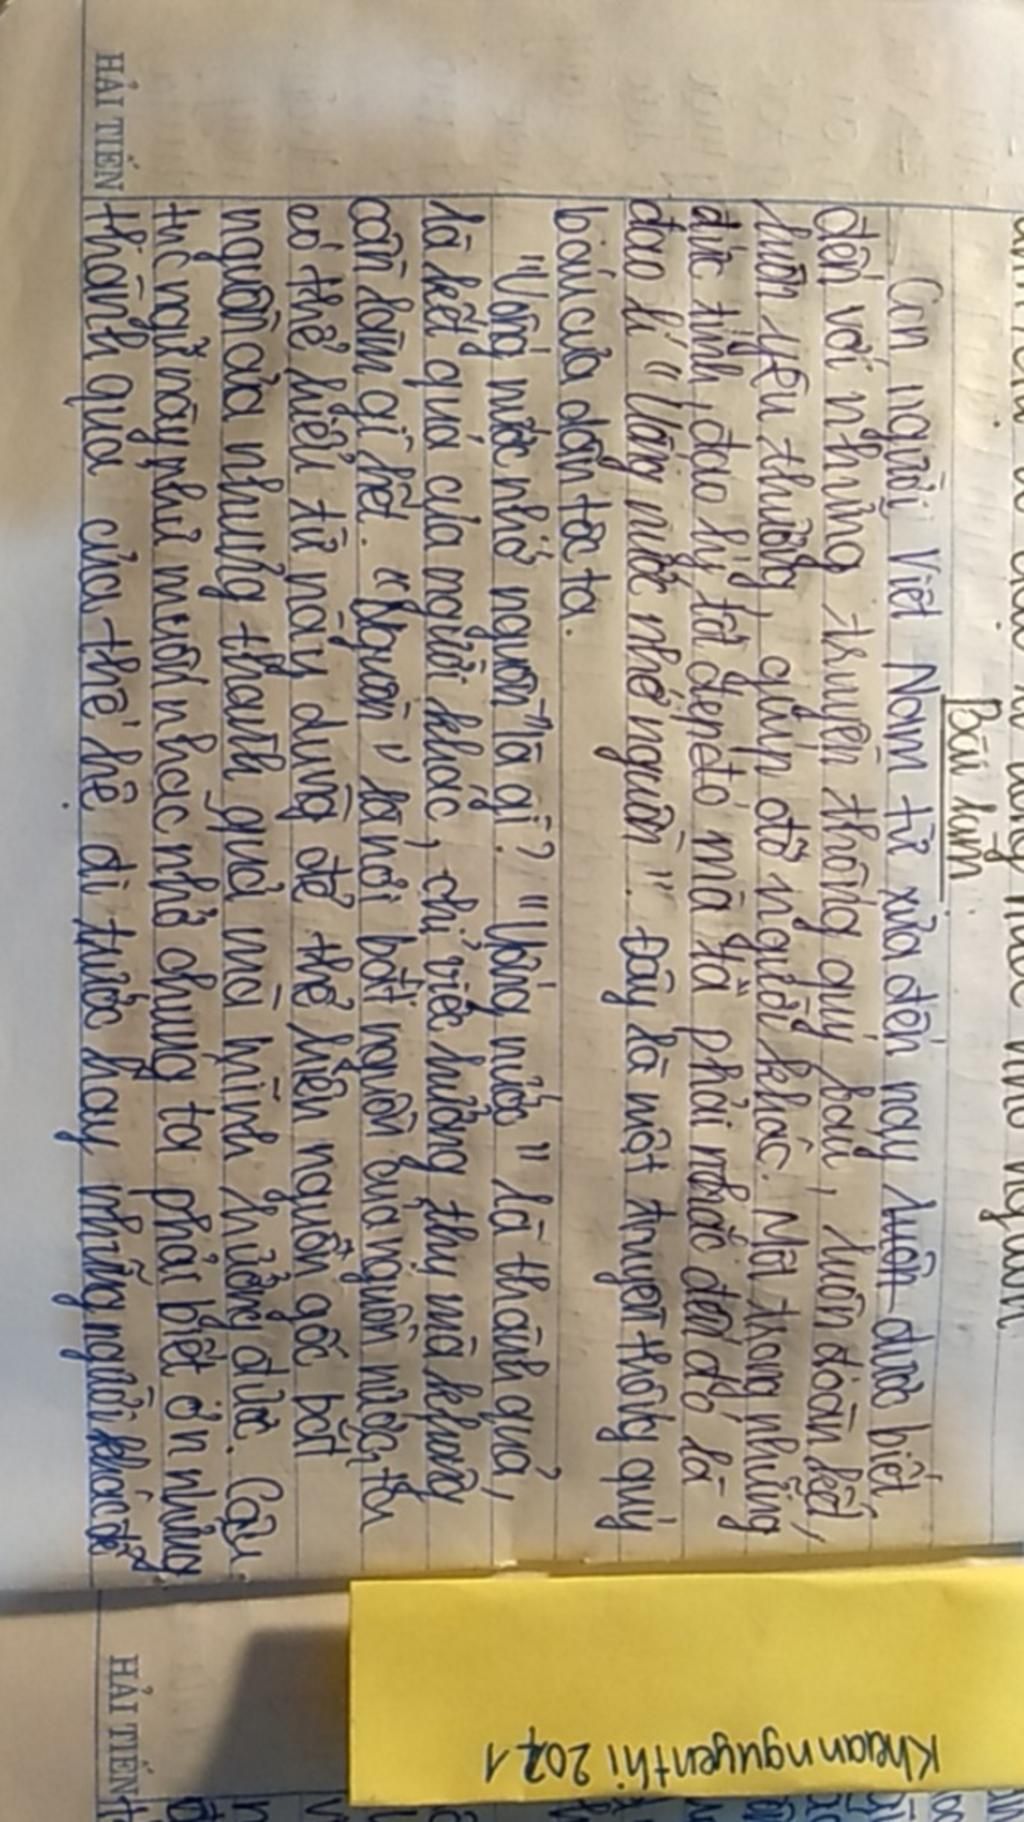 uống nước nhớ nguồn
Bài làm
Con người Việt Nam từ xưa đến nay luôn được biết
đến với những truyền thống quý báu, luôn đoàn kết,
luôn yêu thương, giúp đỡ người khác. Một trong những
đức tính, đạo lý tốt đẹp mà ta phải nhắc đến đó là
đạo lí "Uống nước nhớ nguồn". Đây là một truyền thống quý
báu của dân tộc ta.
"Uống nước nhớ nguồn" là gì? "Uống nước" là thành quả,
là kết quả của người khác, chỉ việc hưởng thụ mà không
cần làm gì hết. "Nguồn" là nơi bắt nguồn của nguồn nước, ta
có thể hiểu từ này dùng để thể hiện nguồn gốc bắt
nguồn của những thành quả mà mình hưởng được. Câu
tục ngữ này như muốn nhắc nhở chúng ta phải biết ơn những
thành quả của thế hệ đi trước hay những người khác để
HẢI TIẾN
HẢI TIẾN
Kheannguyenthi 2021